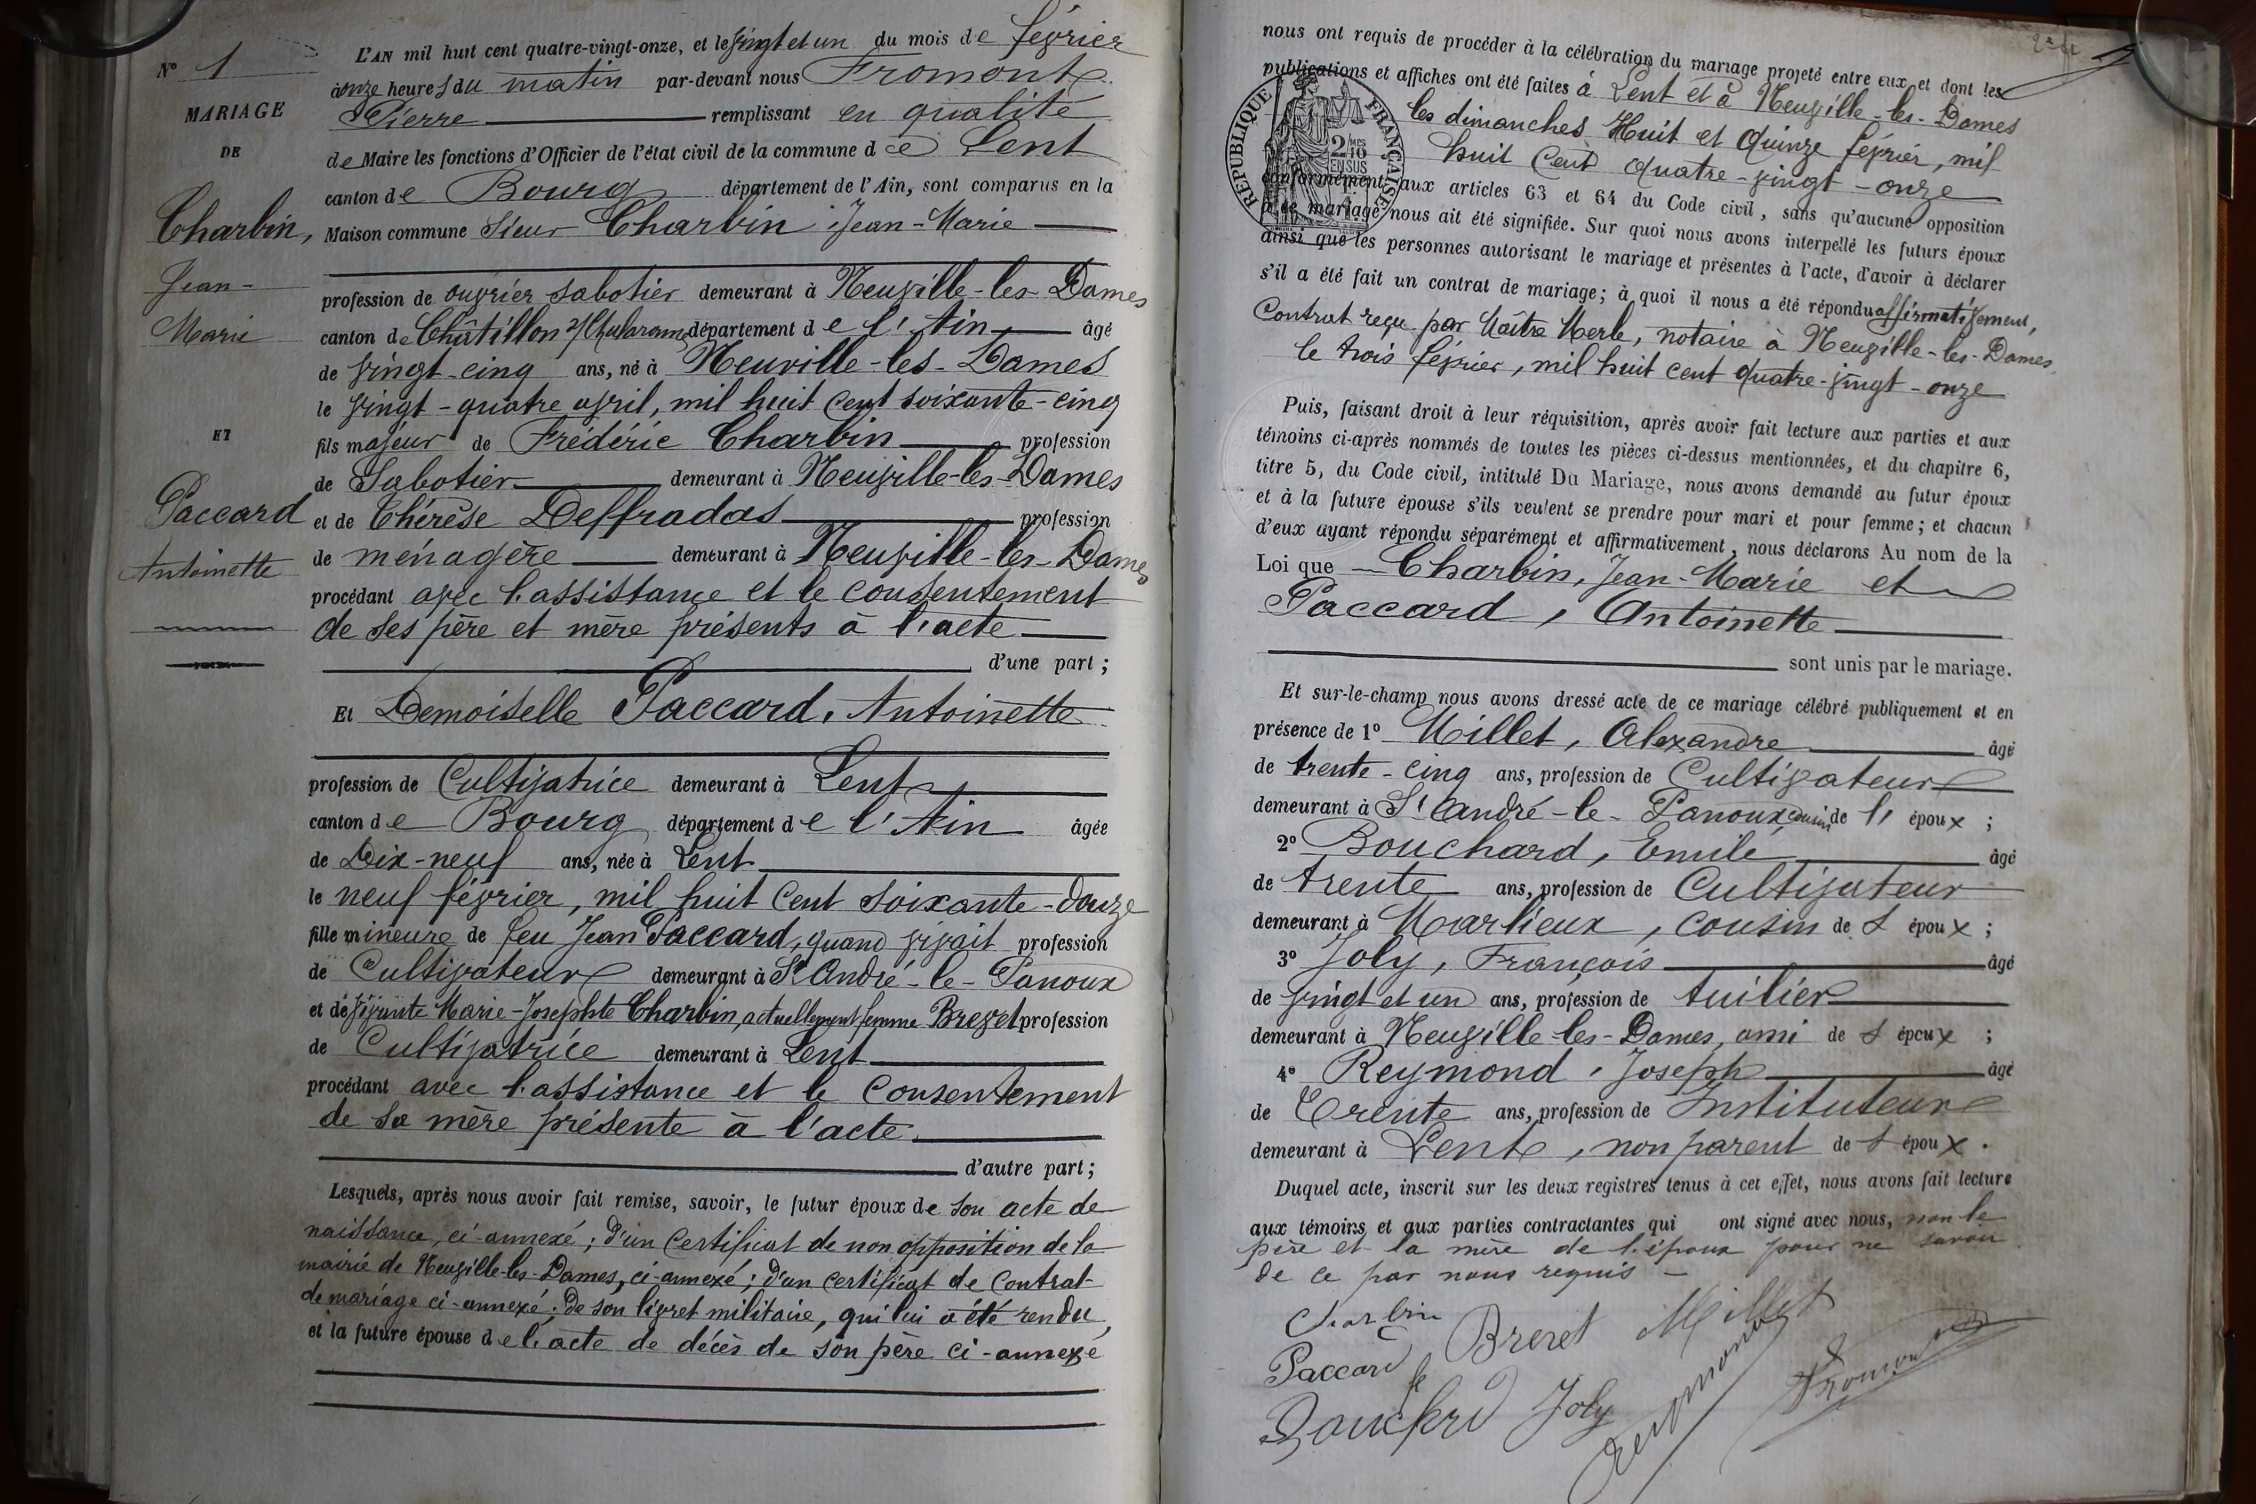 N° 1
MARIAGE
DE
Charbin,
Jean-
Marie
ET
Paccard
Antoinette
L'AN mil huit cent quatre-vingt-onze, et le vingt et un du mois de février
à onze heures du matin par-devant nous Fromont
Pierre remplissant en qualité
de Maire les fonctions d'Officier de l'état civil de la commune de Lent
canton de Bourg département de l'Ain, sont comparus en la
Maison commune sieur Charbin Jean-Marie
profession de ouvrier sabotier demeurant à Neuville-les-Dames
canton de Châtillon s/ Chalaronne département de l'Ain âgé
de vingt-cinq ans, né à Neuville-les-Dames
le vingt-quatre avril, mil huit cent soixante-cinq
fils majeur de Frédéric Charbin profession
de Sabotier demeurant à Neuville-les-Dames
et de Thérèse Deffradas profession
de ménagère demeurant à Neuville-les-Dames
procédant avec l'assistance et le consentement
de ses père et mère présents à l'acte
d'une part ;
Et Demoiselle Paccard, Antoinette
profession de Cultivatrice demeurant à Lent
canton de Bourg département de l'Ain âgée
de Dix-neuf ans, née à Lent
le neuf février, mil huit cent soixante-douze
fille mineure de feu Jean Paccard, quand vivait profession
de Cultivateur demeurant à St André-le-Panoux
et de vivante Marie-Josephte Charbin, actuellement femme Brevet profession
de Cultivatrice demeurant à Lent
procédant avec l'assistance et le consentement
de sa mère présente à l'acte.
d'autre part ;
Lesquels, après nous avoir fait remise, savoir, le futur époux de son acte de
naissance, ci-annexé ; d'un certificat de non opposition de la
mairie de Neuville-les-Dames, ci-annexé ; d'un certificat de contrat
de mariage ci-annexé. De son livret militaire, qui lui a été rendu,
et la future épouse de l'acte de décès de son père ci-annexé
nous ont requis de procéder à la célébration du mariage projeté entre eux et dont les
publications et affiches ont été faites à Lent et à Neuville-les-Dames
les dimanches Huit et Quinze février, mil
huit cent quatre-vingt-onze
RÉPUBLIQUE FRANÇAISE
2/10
EN SUS
conformément aux articles 63 et 64 du Code civil, sans qu'aucune opposition
à ce mariage nous ait été signifiée. Sur quoi nous avons interpellé les futurs époux
ainsi que les personnes autorisant le mariage et présentes à l'acte, d'avoir à déclarer
s'il a été fait un contrat de mariage ; à quoi il nous a été répondu affirmativement,
Contrat reçu par Maître Merle, notaire à Neuville-les-Dames,
le trois février, mil huit cent quatre-vingt-onze
Puis, faisant droit à leur réquisition, après avoir fait lecture aux parties et aux
témoins ci-après nommés de toutes les pièces ci-dessus mentionnées, et du chapitre 6,
titre 5, du Code civil, intitulé Du Mariage, nous avons demandé au futur époux
et à la future épouse s'ils veulent se prendre pour mari et pour femme ; et chacun
d'eux ayant répondu séparément et affirmativement, nous déclarons Au nom de la
Loi que Charbin, Jean-Marie et
Paccard, Antoinette
sont unis par le mariage.
Et sur-le-champ nous avons dressé acte de ce mariage célébré publiquement et en
présence de 1° Millet, Alexandre âgé
de trente-cinq ans, profession de Cultivateur
demeurant à St André-le-Panoux, cousin de l' époux ;
2° Bouchard, Emile âgé
de trente ans, profession de Cultivateur
demeurant à Marlieux, cousin de l' époux ;
3° Joly, François âgé
de vingt et un ans, profession de tuilier
demeurant à Neuville-les-Dames, ami de l' époux ;
4° Reymond, Joseph âgé
de Trente ans, profession de Instituteur
demeurant à Lent, non parent de l' époux.
Duquel acte, inscrit sur les deux registres tenus à cet effet, nous avons fait lecture
aux témoins et aux parties contractantes qui ont signé avec nous, non le
père et la mère de l'époux pour ne savoir
de ce par nous requis
Charbin
Brevet
Millet
Paccard
Bouchard
Joly
Reymond
Fromont